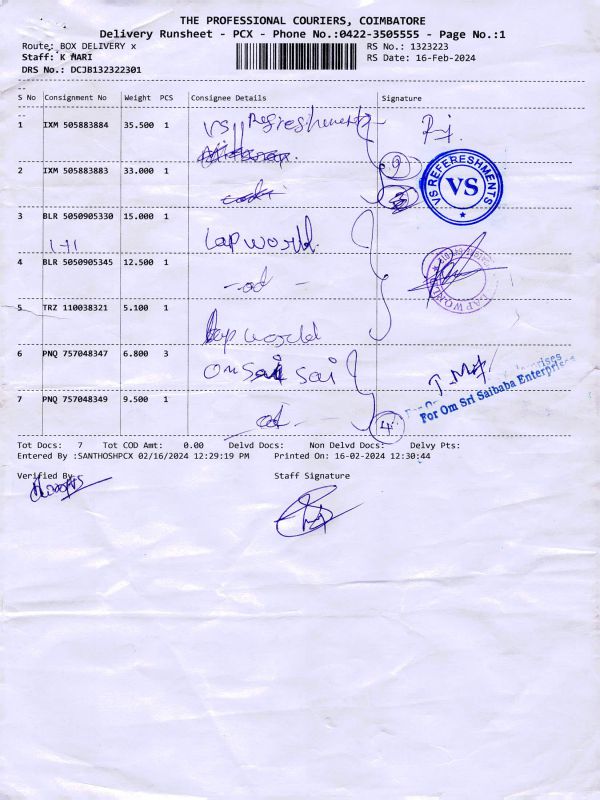 THE PROFESSIONAL COURIERS, COIMBATORE
Delivery Runsheet - PCX - Phone No.:0422-3505555 - Page No.:1
Route: BOX DELIVERY x
RS No.: 1323223
Staff: K MARI
RS Date: 16-Feb-2024
DRS No.: DCJB132322301
S No Consignment No Weight PCS Consignee Details Signature
1 IXM 505883884 35.500 1 VS Refreshments
2 IXM 505883883 33.000 1
VS REFERESHMENTS
VS
3 BLR 5050905330 15.000 1 Lap world
4 BLR 5050905345 12.500 1
LAP WORLD
5 TRZ 110038321 5.100 1 Lap world
6 PNQ 757048347 6.800 3 Om Sai
For Om Sri Saibaba Enterprises
7 PNQ 757048349 9.500 1
4
Tot Docs: 7 Tot COD Amt: 0.00 Delvd Docs: Non Delvd Docs: Delvy Pts:
Entered By :SANTHOSHPCX 02/16/2024 12:29:19 PM Printed On: 16-02-2024 12:30:44
Verified By
Staff Signature